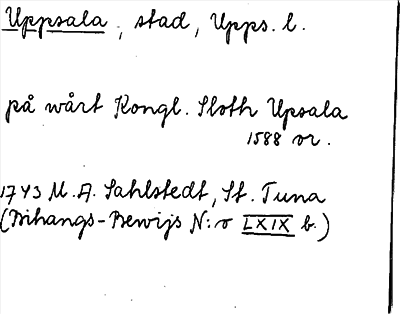 Uppsala, stad, Upps. l.
på wårt Kongl. Sloth Upsala
1588 or.
1743 M. A. Sahlstedt, St. Tuna
(Bihangs-Bewijs N:o LXIX b.)